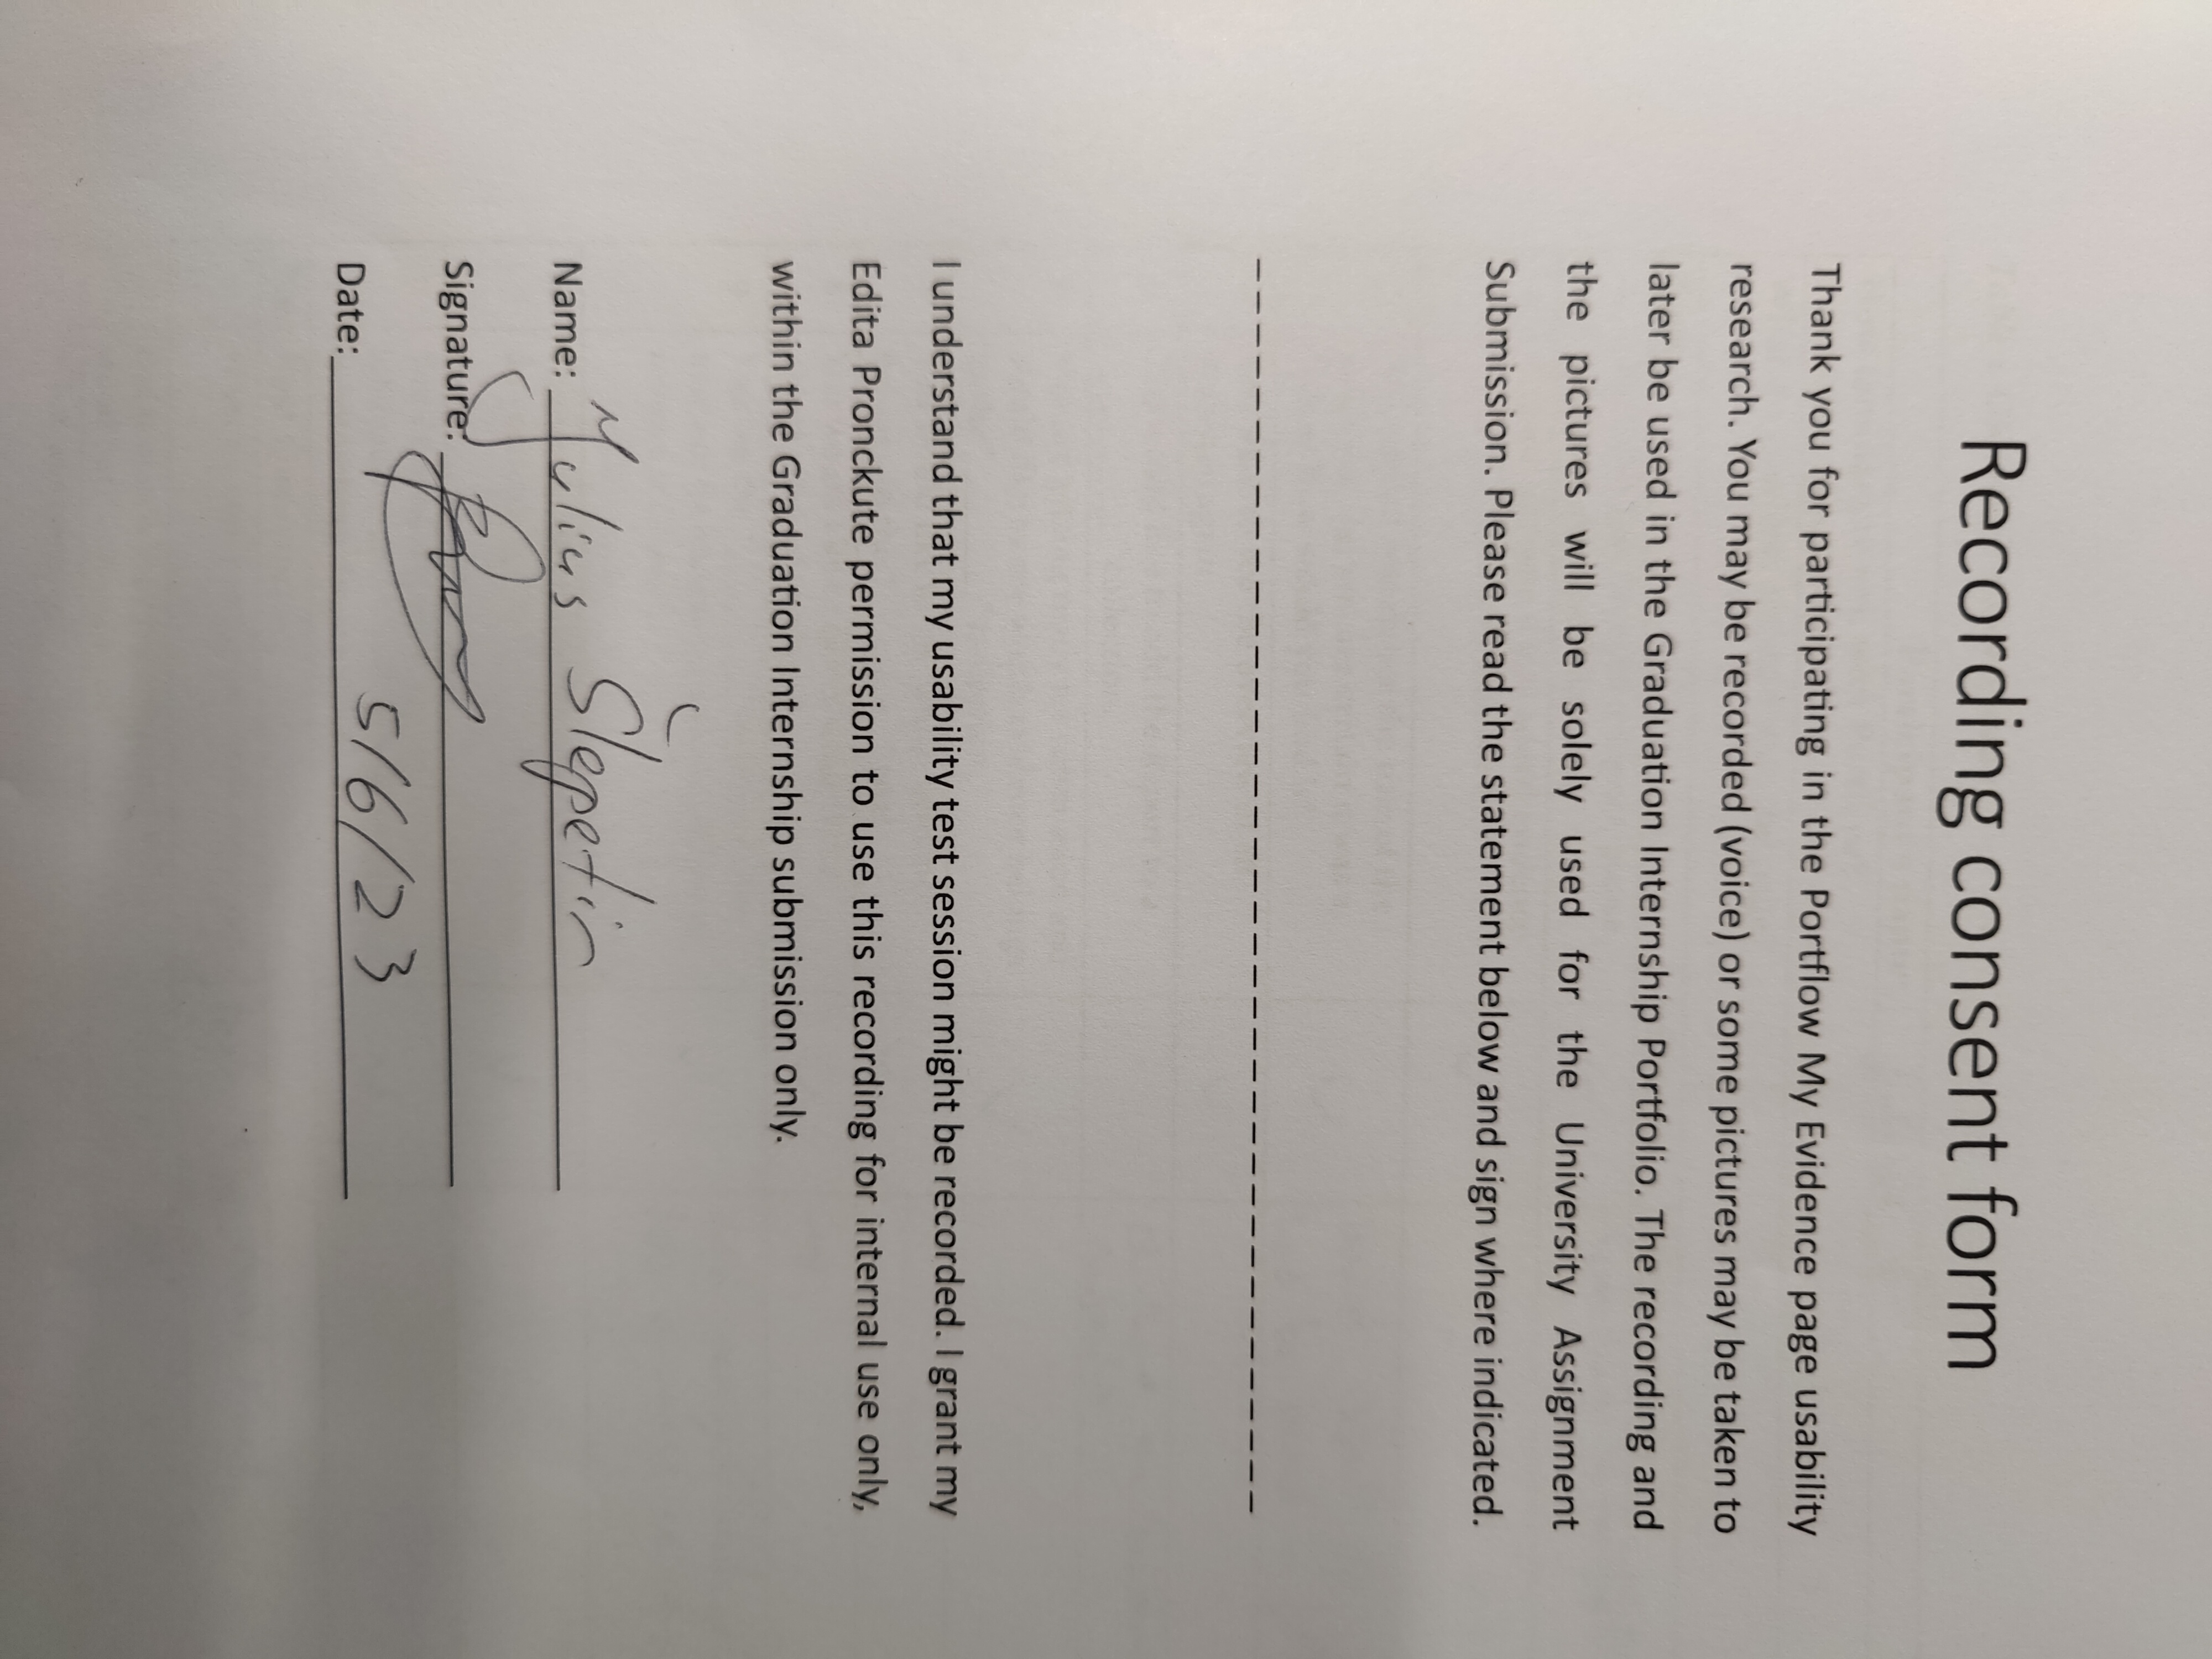 Recording consent form
Thank you for participating in the Portflow My Evidence page usability
research. You may be recorded (voice) or some pictures may be taken to
later be used in the Graduation Internship Portfolio. The recording and
the pictures will be solely used for the University Assignment
Submission. Please read the statement below and sign where indicated.
I understand that my usability test session might be recorded. I grant my
Edita Pronckute permission to use this recording for internal use only,
within the Graduation Internship submission only.
Name: Julius Šlepetin
Signature:
Date: 5/6/23